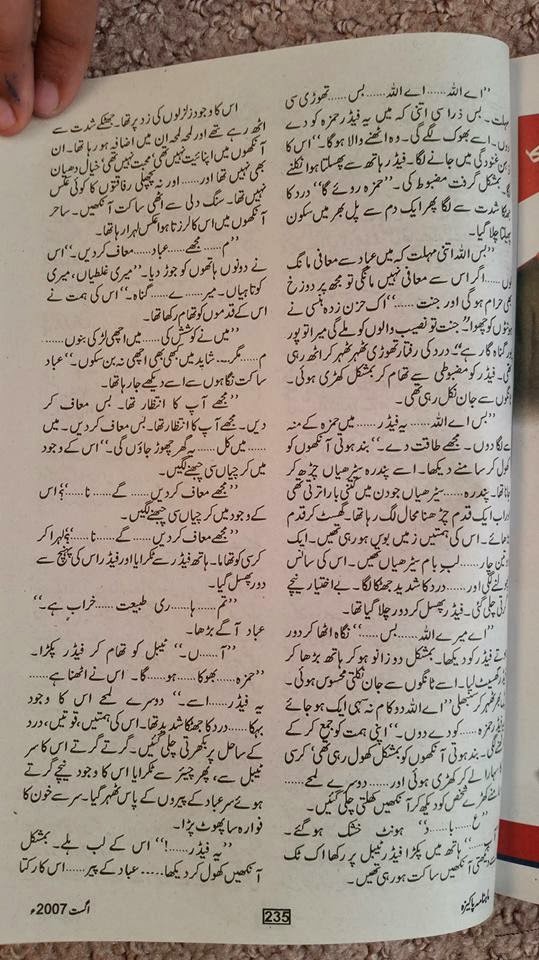 ”اے اللہ...... اے اللہ...... بس...... تھوڑی سی
مہلت۔ بس ذرا سی اتنی کہ میں یہ فیڈر حمزہ کو دے
دوں۔ اسے بھوک لگے گی۔ وہ اٹھنے والا ہوگا۔“ اس کا
غنودگی میں جانے لگا۔ فیڈر ہاتھ سے پھسلتا ہوا نکلنے
بمشکل گرفت مضبوط کی۔ ”حمزہ روئے گا“ درد کا
شدت سے لگا پھر ایک دم سے پل بھر میں سکون
پھیلتا چلا گیا۔
”بس اللہ اتنی مہلت کہ میں عباد سے معافی مانگ
اگر اس سے معافی نہیں مانگی تو مجھ پر دوزخ
بھی حرام ہوگی اور جنت......“ اک حزن زدہ ہنسی نے
ہونٹوں کو چھوا۔ ”جنت تو نصیب والوں کو ملے گی میرا تو پور
پور گناہ گار ہے۔“ درد کی رفتار تھوڑی ٹھہر ٹھہر کر اٹھ رہی
تھی۔ فیڈر کو مضبوطی سے تھام کر بمشکل کھڑی ہوئی۔
ٹانگوں سے جان نکل رہی تھی۔
”بس اے اللہ...... یہ فیڈر...... میں حمزہ کے منہ
سے لگا دوں۔ مجھے طاقت دے۔“ بند ہوتی آنکھوں کو
کھول کر سامنے دیکھا۔ اسے پندرہ سیڑھیاں چڑھ کر
جانا تھا۔ پندرہ...... سیڑھیاں جو دن میں کتنی بار اترتی تھی
اور اب ایک قدم چڑھنا محال لگ رہا تھا۔ گھسٹ کر قدم
بڑھائے۔ اس کی ہمتیں زمیں بوس ہو رہی تھیں۔ ایک
دو تین چار...... لب بام سیڑھیاں تھیں۔ اس کی سانس
پھولنے لگی اور...... درد کا شدید جھٹکا لگا۔ بے اختیار نیچے
گرتی چلی گئی۔ فیڈر پھسل کر دور چلا گیا تھا۔
”اے میرے اللہ...... بس......“ نگاہ اٹھا کر دور
ہوتے فیڈر کو دیکھا۔ بمشکل دو زانو ہو کر ہاتھ بڑھا کر
گھسیٹ لیا۔ اسے ٹانگوں سے جان نکلتی محسوس ہوئی۔
ٹھہر کر سنبھلی ”اے اللہ دو کام نہ سہی ایک ہو جائے
فیڈر حمزہ...... کو دے دوں۔“ اپنی ہمت کو جمع کر کے
بند ہوتی آنکھوں کو بمشکل کھول رہی تھی‘ کرسی
سہارا لے کر کھڑی ہوئی اور...... دوسرے لمحے......
کھڑے شخص کو دیکھ کر آنکھیں کھلتی چلی گئیں۔
”ع...... با...... د“ ہونٹ خشک ہو گئے۔
ہاتھ میں پکڑا فیڈر ٹیبل پر رکھا اک ٹک
دیکھتی آنکھیں ساکت ہو رہی تھیں۔
اس کا وجود زلزلوں کی زد پر تھا۔ جھٹکے شدت سے
اٹھ رہے تھے اور لمحہ لمحہ ان میں اضافہ ہو رہا تھا۔ ان
آنکھوں میں اپنائیت نہیں تھی‘ محبت نہیں تھی‘ خیال دھیان
بھی نہیں تھا اور...... اور نہ پچھلی رفاقتوں کا کوئی عکس
نہیں تھا۔ سنگ دلی سے اٹھی ساکت آنکھیں۔ ساحر
آنکھوں میں اس کا لرزتا ہوا عکس لہرا رہا تھا۔
”م...... مجھے...... عباد...... معاف کر دیں۔“ اس
نے دونوں ہاتھوں کو جوڑ دیا۔ ”میری غلطیاں‘ میری
کوتاہیاں۔ میر...... ے...... گناہ۔“ اس کی ہمت نے
اس کے قدموں کو تھام رکھا تھا۔
”میں نے کوشش کی...... میں اچھی لڑکی بنوں......
م...... مگر...... شاید میں کبھی بھی اچھی نہ بن سکوں۔“ عباد
ساکت نگاہوں سے اسے دیکھے جا رہا تھا۔
”مجھے آپ کا انتظار تھا۔ بس معاف کر
دیں۔ مجھے آپ کا انتظار تھا۔ بس معاف کر دیں۔ میں
...... میں کل...... یہ گھر چھوڑ جاؤں گی۔“ اس کے وجود
میں کرچیاں سی چبھنے لگیں۔
”مجھے معاف کر دیں...... گے...... نا......“؟ اس
کے وجود میں کرچیاں سی چبھنے لگیں۔
”مجھے معاف کر دیں...... گے...... نا......“؟ لہرا کر
کرسی کو تھاما۔ ہاتھ فیڈر سے ٹکرایا اور فیڈر اس کی پہنچ سے
دور پھسل گیا۔
”تم...... ہا...... ری طبیعت...... خراب ہے۔“
عباد آگے بڑھا۔
”آ...... ں۔“ ٹیبل کو تھام کر فیڈر پکڑا۔
”حمزہ...... بھوکا...... ہو...... گا۔ اس نے اٹھنا ہے......
یہ فیڈر...... اسے۔“ دوسرے لمحے اس کا وجود
بہکا...... درد کا جھٹکا شدید تھا۔ اس کی ہمتیں‘ قوتیں‘ درد
کے ساحل پر بکھرتی چلی گئیں۔ گرتے گرتے اس کا سر
ٹیبل سے‘ پھر چیئر سے ٹکرایا اس کا وجود نیچے گرتے
ہوئے سر عباد کے پیروں کے پاس ٹھہر گیا۔ سر سے خون کا
فوارہ سا پھوٹ پڑا۔
”یہ فیڈر......!“ اس کے لب ہلے۔ بمشکل
آنکھیں کھول کر دیکھا...... عباد کے پیر...... اس کا رکتا
ماہنامہ پاکیزہ
235
اگست 2007ء